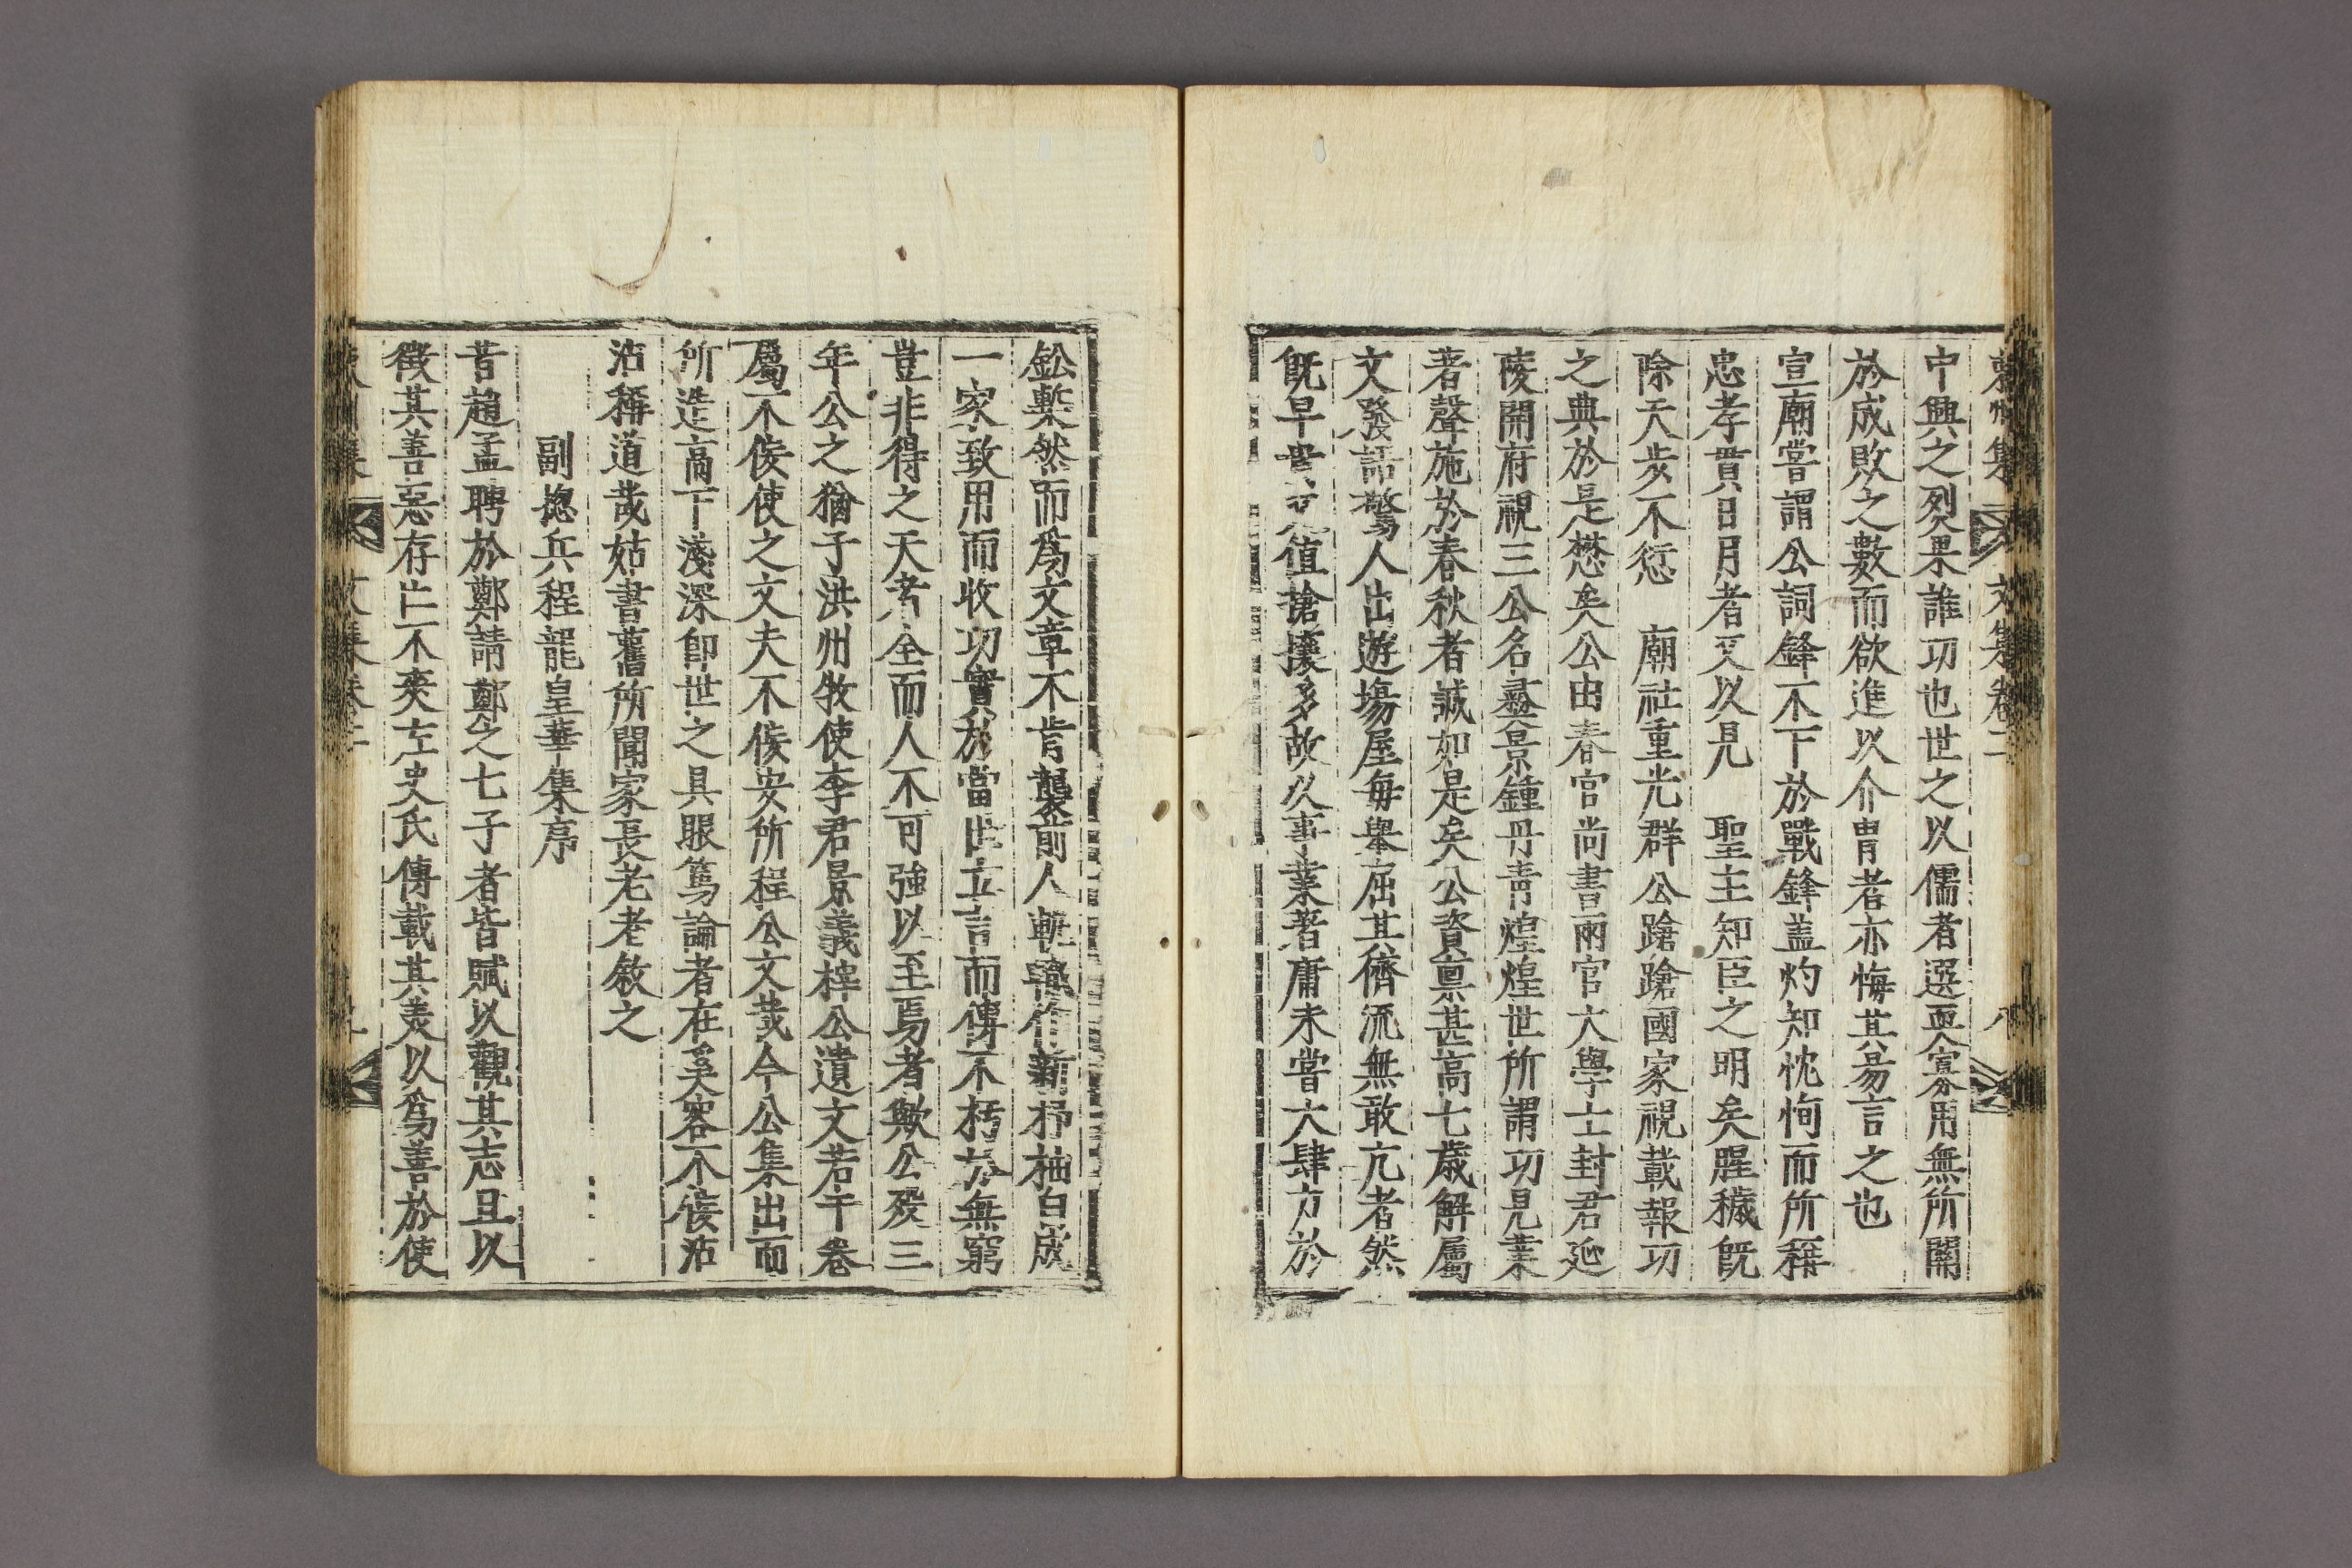 東州集 文集卷二 八
中興之烈果誰功也世之以儒者選耎寡用無所關
於成敗之數而欲進以介胄者亦悔其易言之也
宣廟嘗謂公詞鋒不下於戰鋒盖灼知忱恂而所稱
忠孝貫日月者又以見 聖主知臣之明矣腥穢旣
除天步不愆 廟社重光群公蹌蹌國家視載報功
之典於是懋矣公由春官尚書兩官大學士封君延
陵開府視三公名彝景鍾丹靑煌煌世所謂功見業
著聲施於春秋者誠如是矣公資稟甚高七歲解屬
文發語驚人出遊場屋每擧屈其儕流無敢亢者然
旣早貴 値搶攘多故以事業著庸未嘗大肆力於
鉛槧然而爲文章不肯襲前人軌轍作新杼柚自成
一家致用而收功實於當世立言而傳不朽於無窮
豈非得之天者全而人不可強以至焉者歟公歿三
年公之猶子洪州牧使李君景義梓公遺文若干卷
屬不佞使之文夫不佞安所程公文哉今公集出而
所造高下淺深卽世之具眼篤論者在奚容不佞沾
沾稱道哉姑書舊所聞家長老者敘之
副摠兵程龍皇華集序
昔趙孟聘於鄭請鄭之七子者皆賦以觀其志且以
徵其善惡存亡不爽左史氏傳載其美以爲善於使
東州集 文集卷二